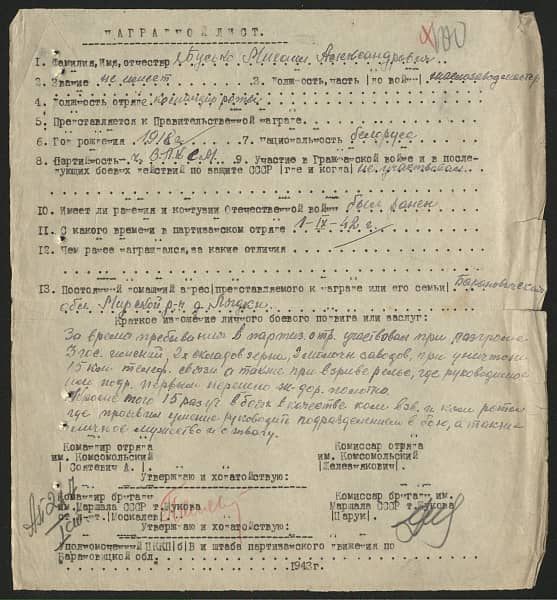 НАГРАДНОЙ ЛИСТ.
1. Фамилия, Имя, отчество Михаил Александрович
2. Звание не имеет 3. Должность, часть |до войны|
4. Должность отряде командир роты
5. Представляется к Правительственной награде.
6. Год рождения 1918 г. 7. Национальность белорус
8. Партийность ч. ВЛКСМ 9. Участие в Гражданской войне и в после-
дующих боевых действий по защите СССР |где и когда| не участвовал
10. Имеет ли ранения и контузии Отечественной войне был ранен
11. С какого времени в партизанском отряде 1-IX-42 г.
12. Чем ранее награждался, за какие отличия
13. Постоянный домашний адрес |представляемого к награде или его семьи| Барановичская
обл. Мирский р-н д.
Краткое изложение личного боевого подвига или заслуг:
За время пребывания в партиз. отр. участвовал при разгроме
3 гос. имений, 2х складов зерна, 3 заводов, при уничтож.
15 км телеф. связи а также при взрыве рельс, где руководимое
им подр. первым перешло ж-дор. полотно.
Кроме того 15 раз уч. в боях в качестве ком. взв. и ком. роты
где проявил умение руководить подразделением в бою, а также
личное мужество и отвагу.
Командир отряда Комиссар отряда
им. Комсомольский им. Комсомольский
|Соятевич А. |. |Железнякович|.
Утверждаю и ходатайствую:
Командир бригады Комиссар бригады им.
им. Маршала СССР т. Жукова Маршала СССР т. Жукова
|Москалев| |Царук|.
Утверждаю и ходатайствую:
Уполномоченный ЦККП|б|В и штаба партизанского движения по
Барановицкой обл.
1943 г.